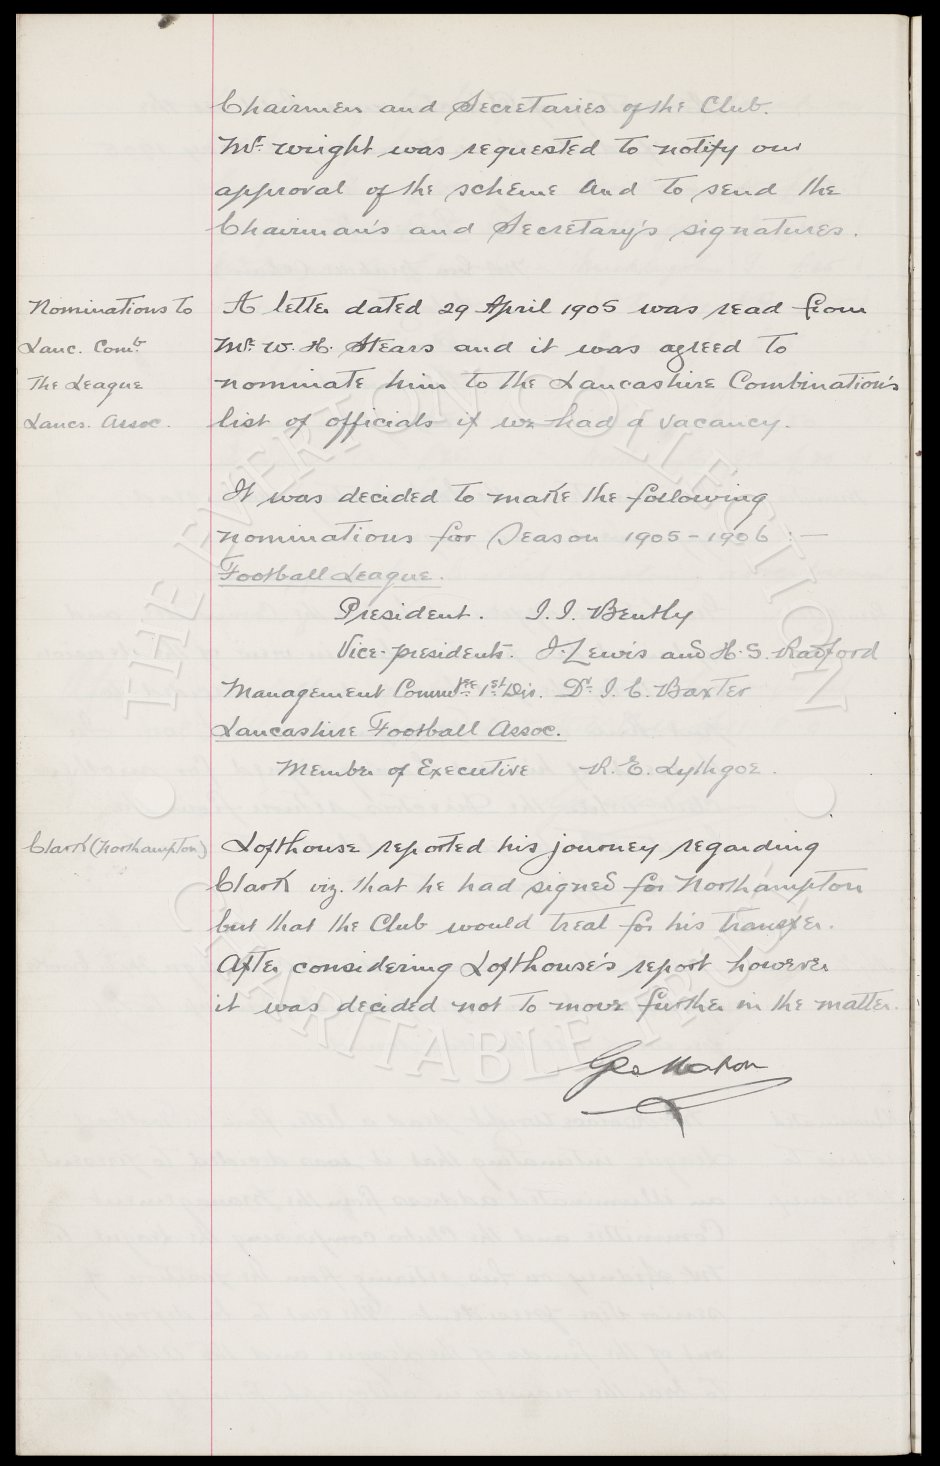 Chairmen and Secretaries of the Club.
Mr. Wright was requested to notify our
approval of the scheme and to send the
Chairman's and Secretary's signatures.
Nominations to
Lanc. Comb.
The League
Lancs. Assoc.
A letter dated 29 April 1905 was read from
Mr. W. H. Stears and it was agreed to
nominate him to the Lancashire Combination's
list of officials if we had a vacancy.
It was decided to make the following
nominations for Season 1905-1906 :—
Football League.
President. J. J. Bently
Vice-presidents. J. Lewis and H. S. Radford
Management Commtee 1st Div. Dr. J. C. Baxter
Lancashire Football Assoc.
Member of Executive R. E. Lythgoe.
Clark (Northampton)
Lofthouse reported his journey regarding
Clark viz. that he had signed for Northampton
but that the Club would treat for his transfer.
After considering Lofthouse's report however
it was decided not to move further in the matter.
Geo Mahon
THE EVERTON COLLECTION
CHARITABLE TRUST